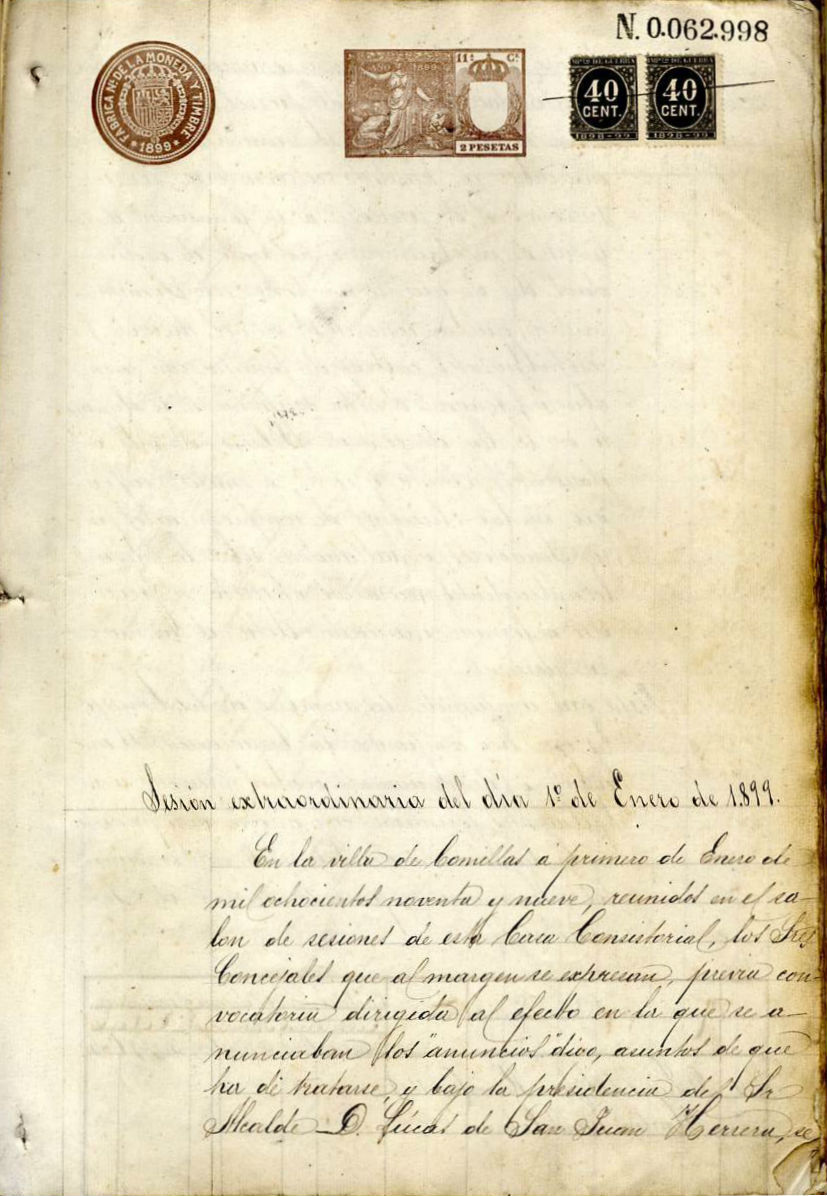 N. 0.062.998
FABRICA Nal DE LA MONEDA Y TIMBRE
* 1899 *
AÑO 1899
11ª Cª
2 PESETAS
IMPTO DE GUERRA
40
CENT.
1898-99
IMPTO DE GUERRA
40
CENT.
1898-99
Sesión extraordinaria del día 1º de Enero de 1.899.
En la villa de Comillas á primero de Enero de
mil ochocientos noventa y nueve, reunidos en el sa-
lon de sesiones de esta Casa Consistorial, los Sres
Concejales que al margen se expresan, previa con-
vocatoria dirigida al efecto en la que se a-
nunciaban los "anuncios" digo, asuntos de que
ha de tratarse, y bajo la presidencia del Sr
Alcalde D. Lúcas de San Juan Herrera, se